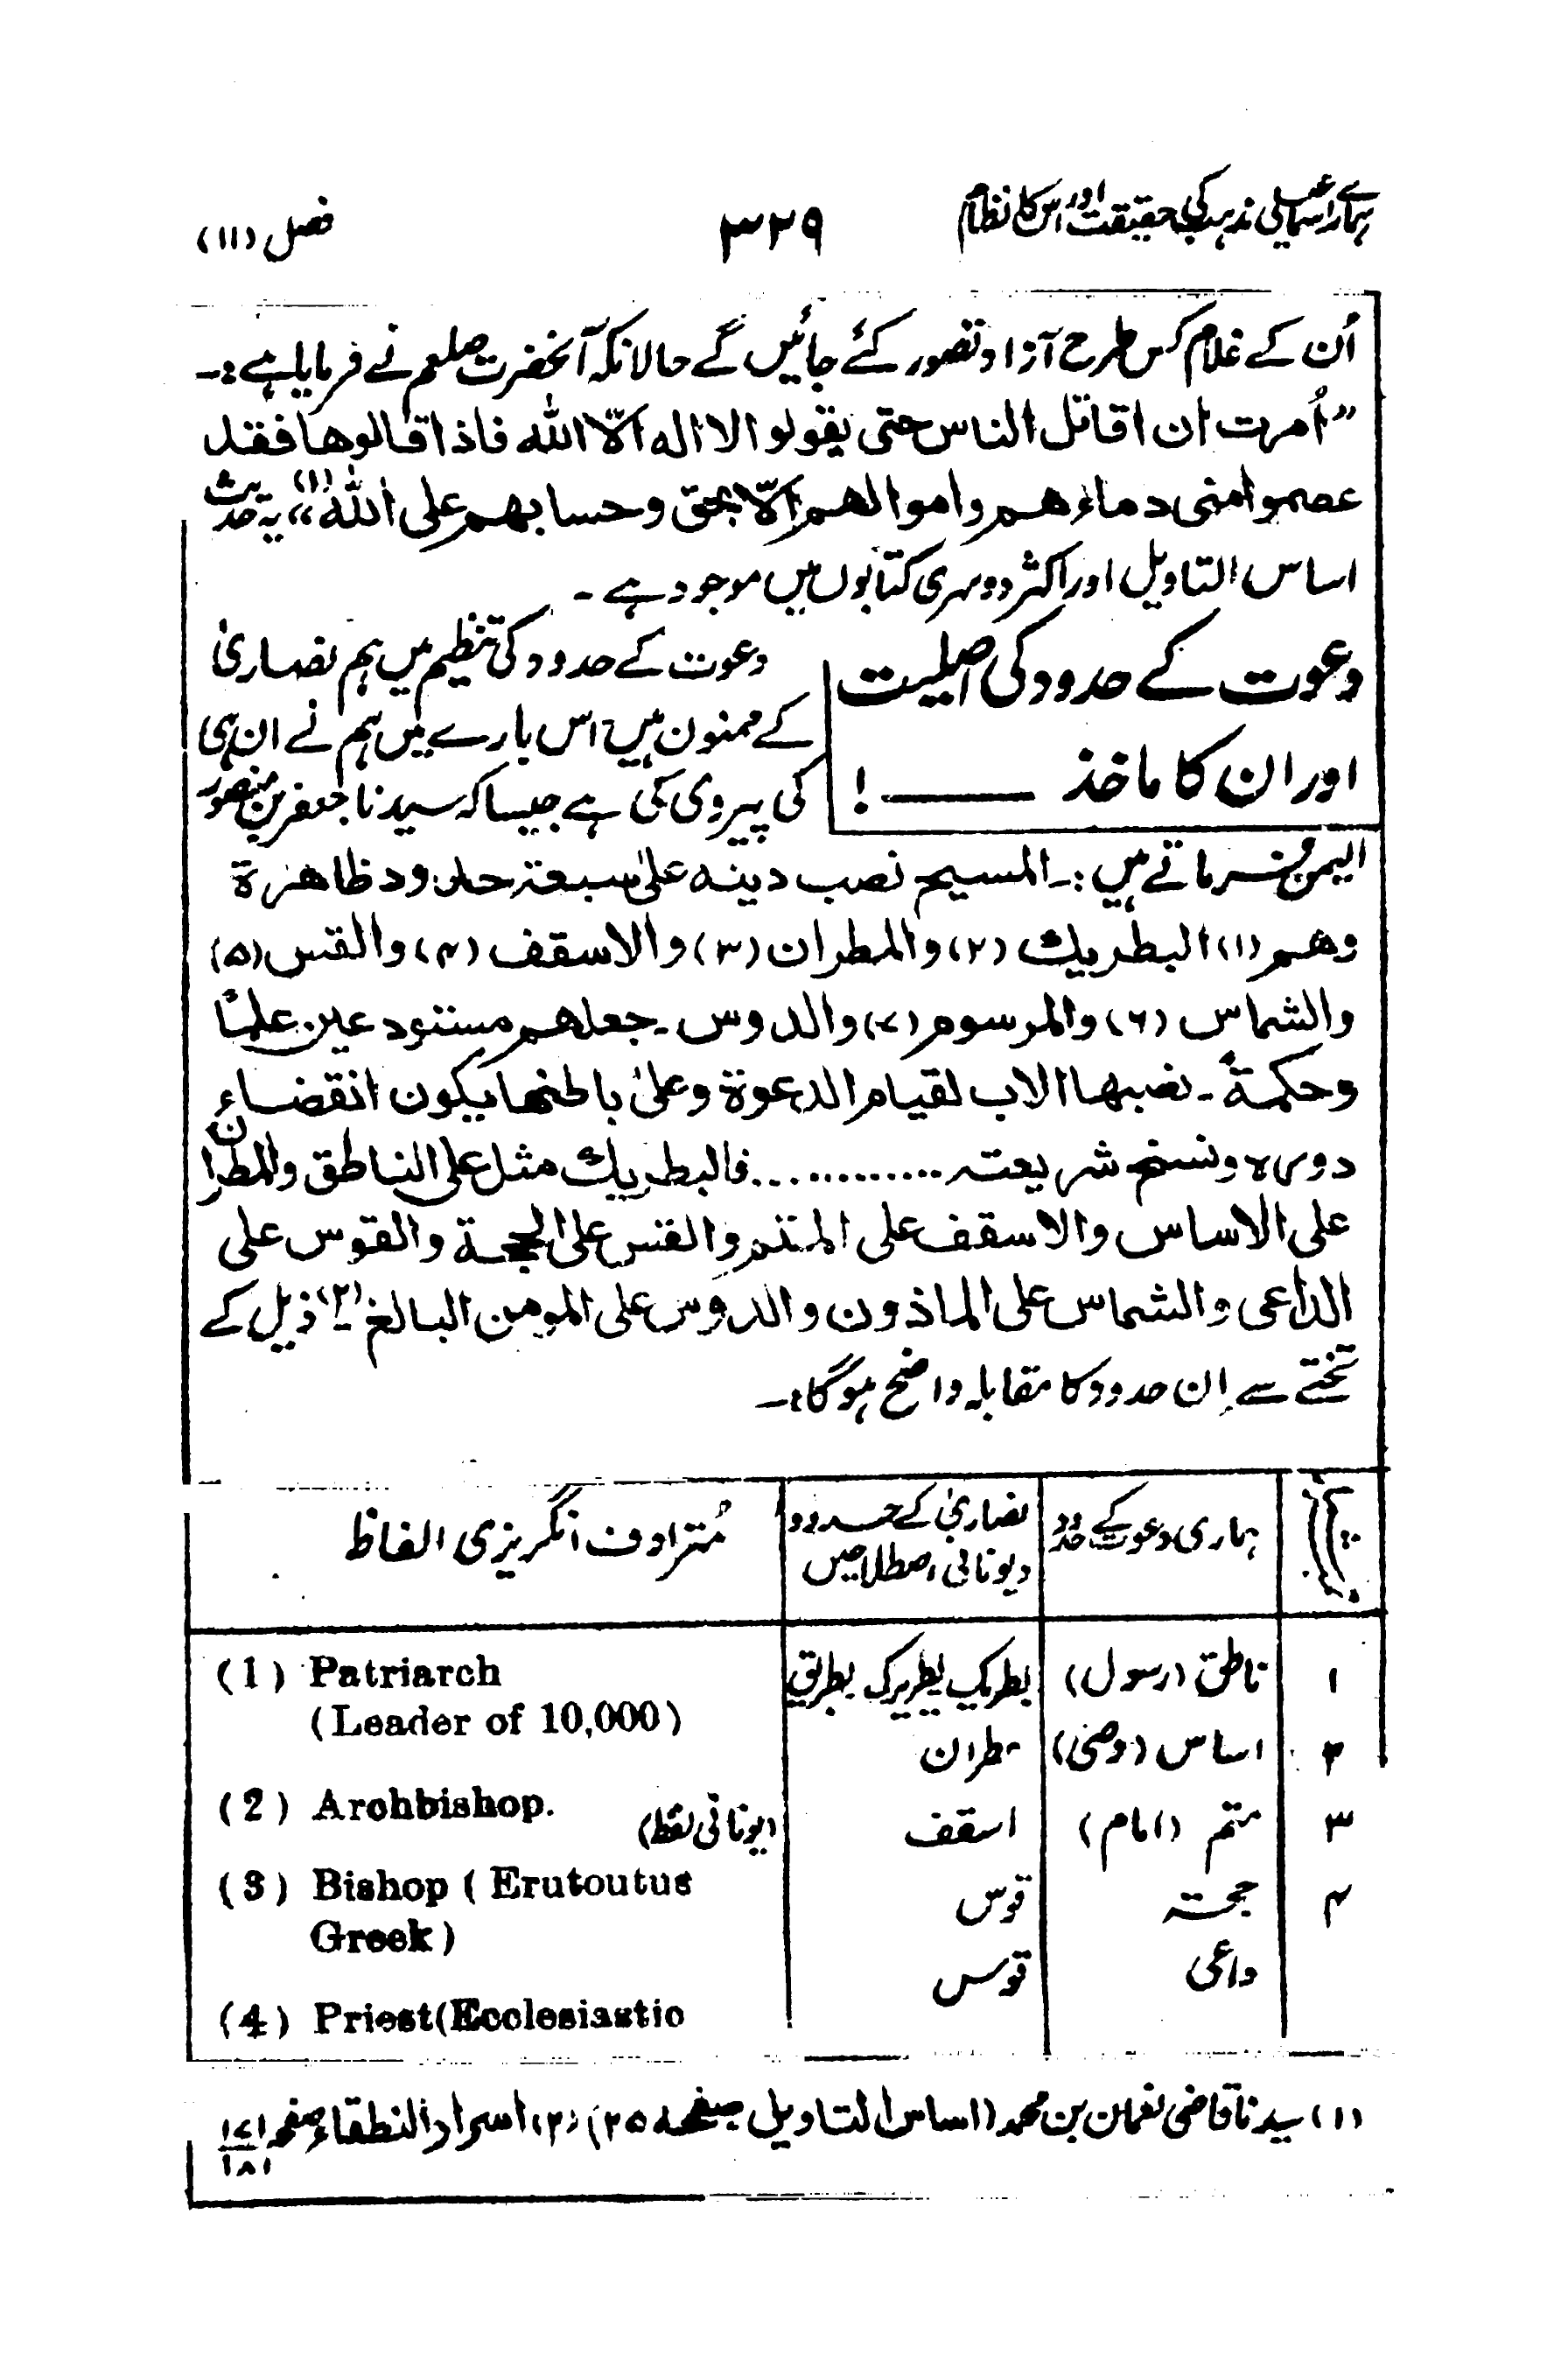 ہمارے اسماعیلی مذہب کی حقیقت اور اس کا نظام ۳۲۹ فصل (۱۱)
اُن کے غلام کس طرح آزاد تصور کئے جائیں گے حالانکہ آنحضرت صلعم نے فرمایا ہے:۔
”اُمرت ان اقاتل الناس حتی یقولوا لا الہ الّا اللّٰہ فاذا قالوھا فقد
عصموا منی دماءھم واموالھم الّا بحق وحسابھم علی اللّٰہ“ (۱) یہ حدیث
اساس التاویل اور اکثر دوسری کتابوں میں موجود ہے ۔
دعوت کے حدود کی اصلیت
اور ان کا ماخذ ——— !
دعوت کے حدود کی تنظیم میں ہم نصاریٰ
کے ممنون ہیں اس بارے میں ہم نے ان ہی
کی پیروی کی ہے جیسا کہ سیدنا جعفر بن منصور
الیمن فرماتے ہیں :۔ المسیح نصب دینہ علیٰ سبعۃ حدود ظاھرۃ
وھم (۱) البطریك (۲) والمطران (۳) والاسقف (۴) والقس (۵)
والشماس (۶) والمرسوم (۷) والدوس ۔ جعلھم مستودعین علمًا
وحکمۃً ۔ نصبھا الاب لقیام الدعوۃ وعلیٰ باطنھا یکون انقضاء
دورہ ونسخ شریعتہ ............ فالبطریك مثل علی الناطق والمطران
علی الاساس والاسقف علی المتم والقس علی الحجۃ والقوس علی
الداعی والشماس علی الماذون والدوس علی المومن البالغ (۲) ۔ ذیل کے
تختے سے اِن حدود کا مقابلہ واضح ہوگا:۔
ہماری دعوت کے حدود | نصاریٰ کے حدود (یونانی اصطلاحیں | مُترادف انگریزی الفاظ
۱ | ناطق (رسول) | بطریک بطریرک بطریق | (1) Patriarch
(Leader of 10,000)
۲ | اساس (وصی) | مطران | (2) Archbishop.
۳ | متم (امام) | اسقف | (یونانی لفظ)
(3) Bishop ( Erutoutus
Greek)
۴ | حجت | قوس
داعی | قوس | (4) Priest(Ecclesiastic
(۱) سیدنا قاضی نعمان بن محمد (اساس التاویل صفحہ ۲۵) (۲) اسرار النطقاء صفحہ ۱۷۱/۱۸۱